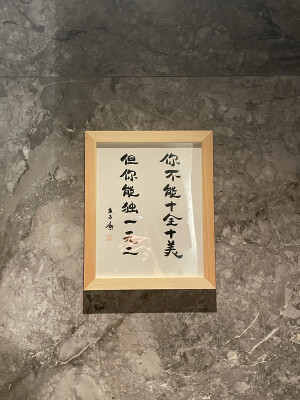 你不能十全十美
但你能独一无二